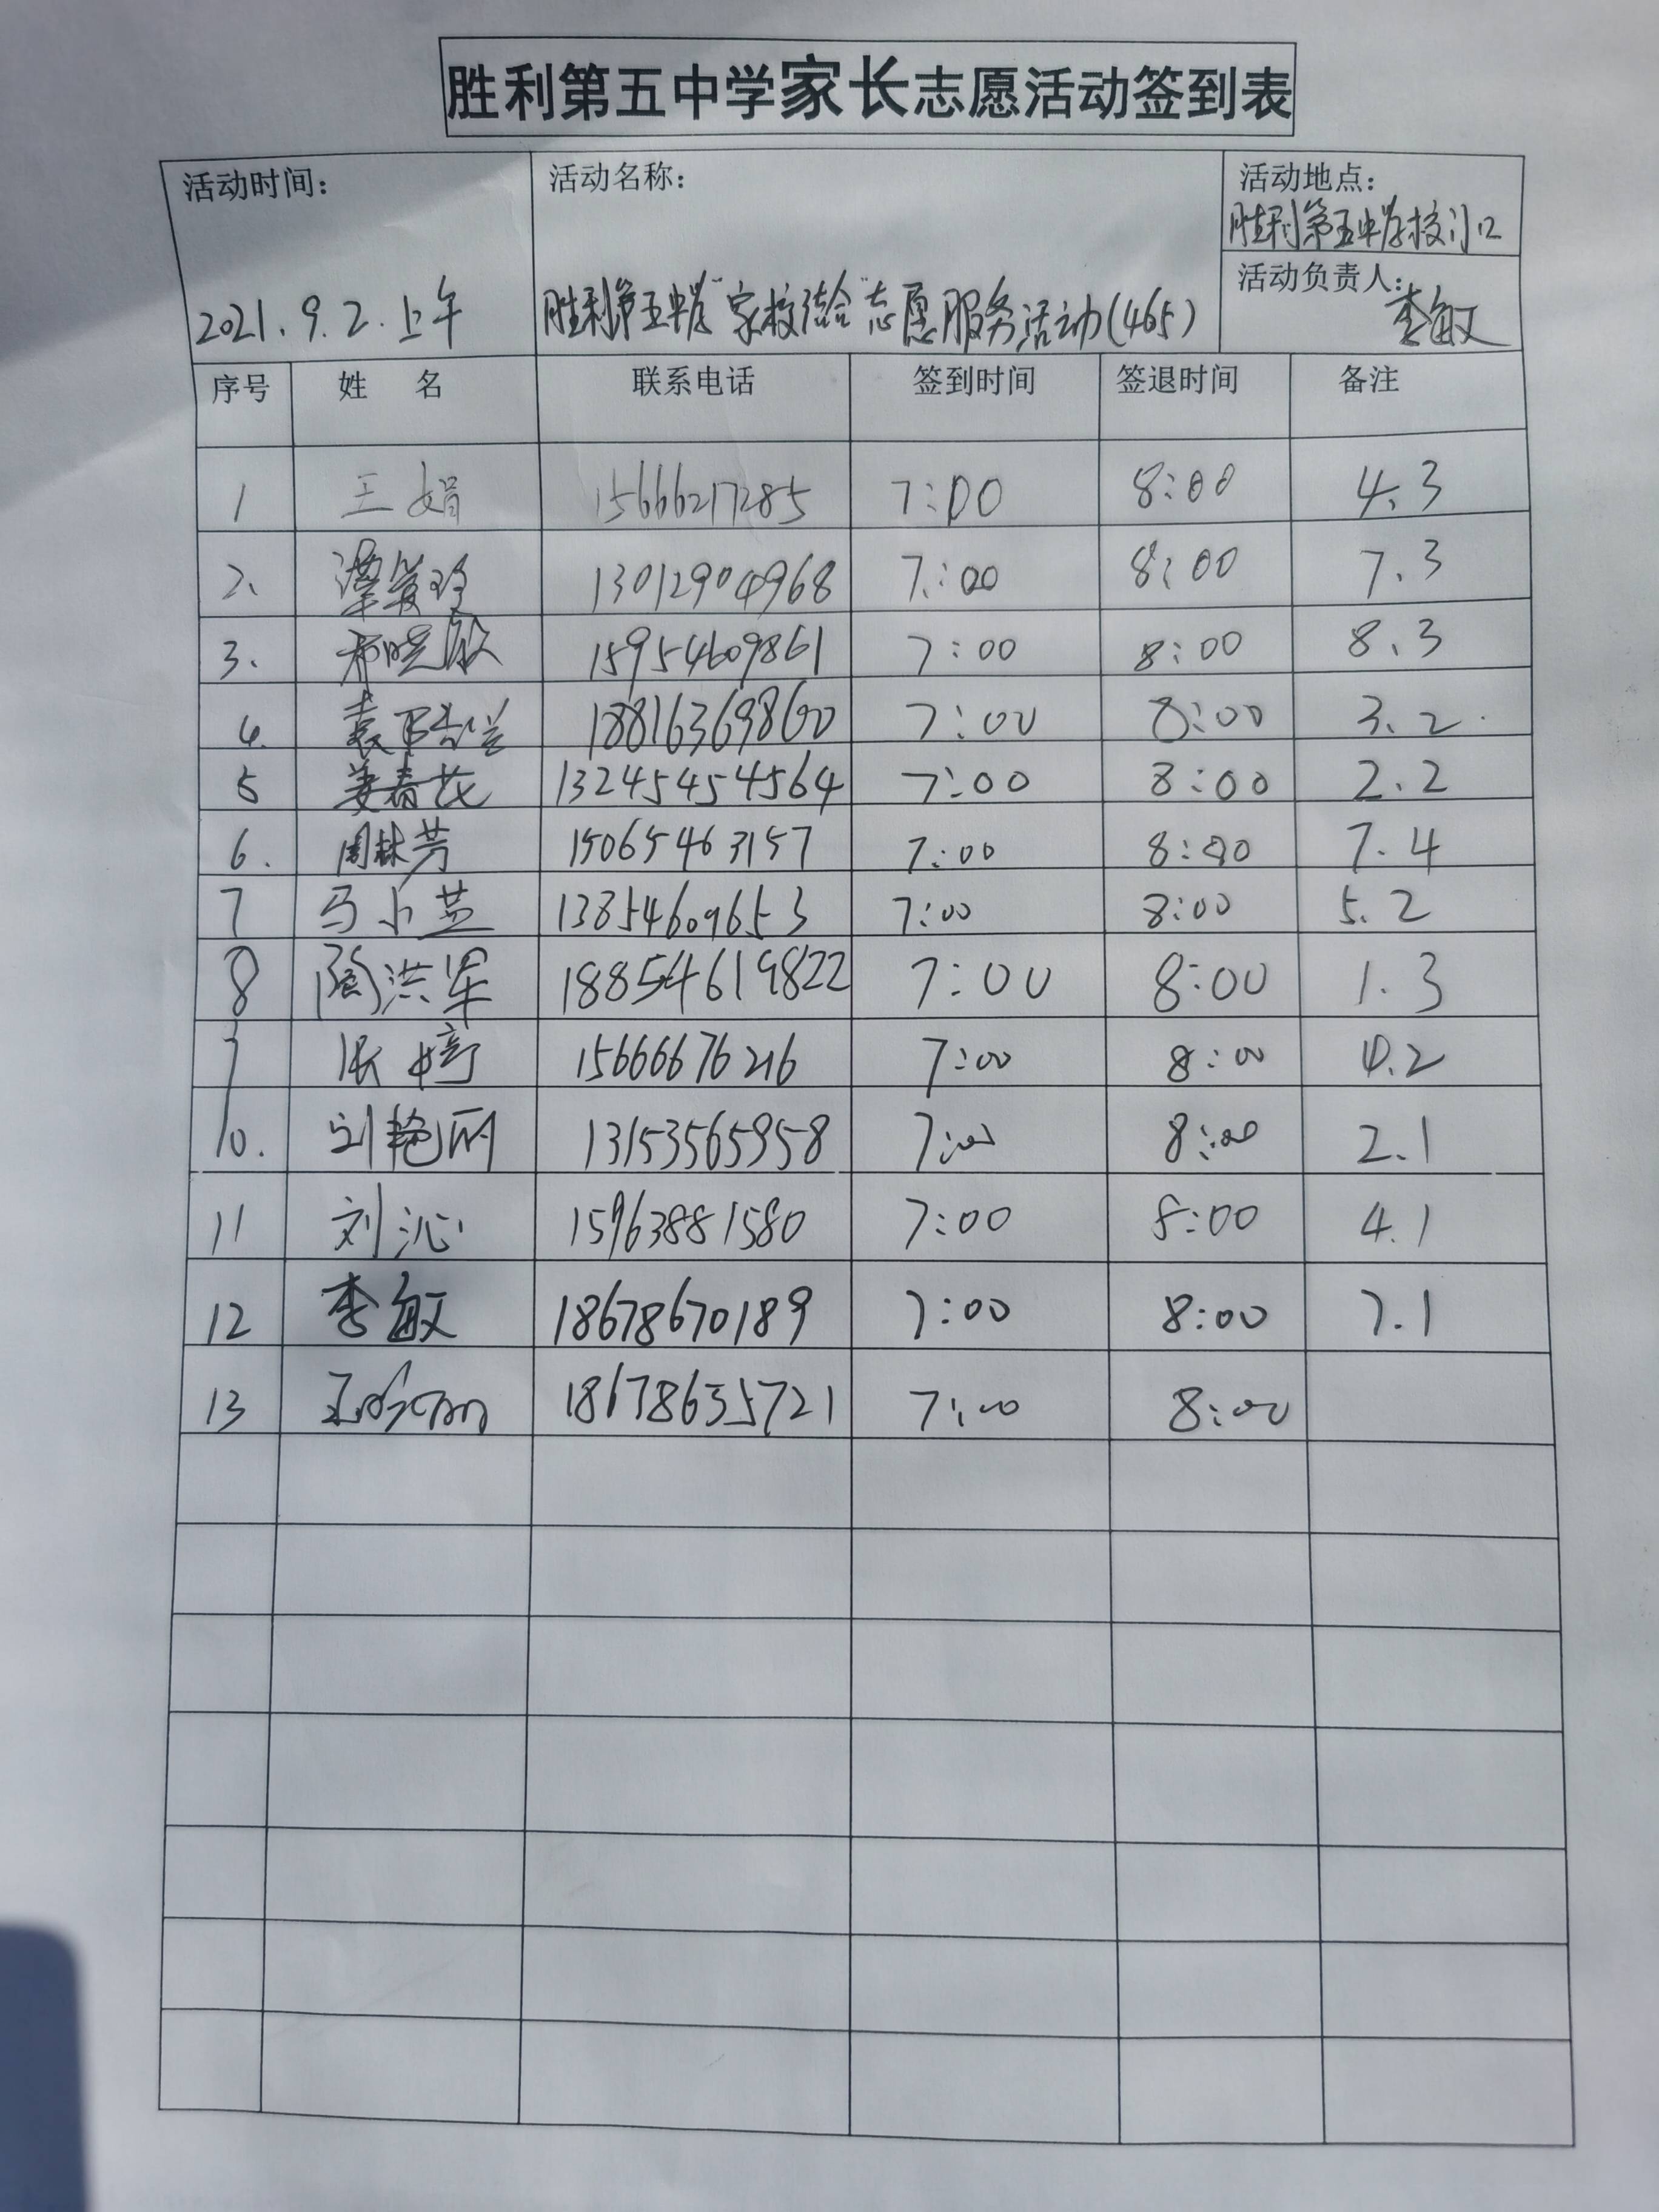 胜利第五中学家长志愿活动签到表
活动时间: 活动名称: 活动地点:
胜利第五中学校门口
活动负责人:
2021.9.2.上午 胜利第五中学"家校结合"志愿服务活动(465) 李敏
序号 姓 名 联系电话 签到时间 签退时间 备注
1 王娟 15666217285 7:00 8:00 4.3
2、 13012904968 7:00 8:00 7.3
3、 15954609861 7:00 8:00 8.3
4. 18816369860 7:00 8:00 3.2
5 姜春花 13245454564 7:00 8:00 2.2
6. 周林芳 15065463157 7:00 8:00 7.4
7 马小燕 13854609653 7:00 8:00 5.2
8 陶洪军 18854619822 7:00 8:00 1.3
9 张婷 15666676216 7:00 8:00 4.2
10. 刘艳丽 13153565958 7:00 8:00 2.1
11 刘沁 15963881580 7:00 8:00 4.1
12 李敏 18678670189 7:00 8:00 7.1
13 18678635721 7:00 8:00